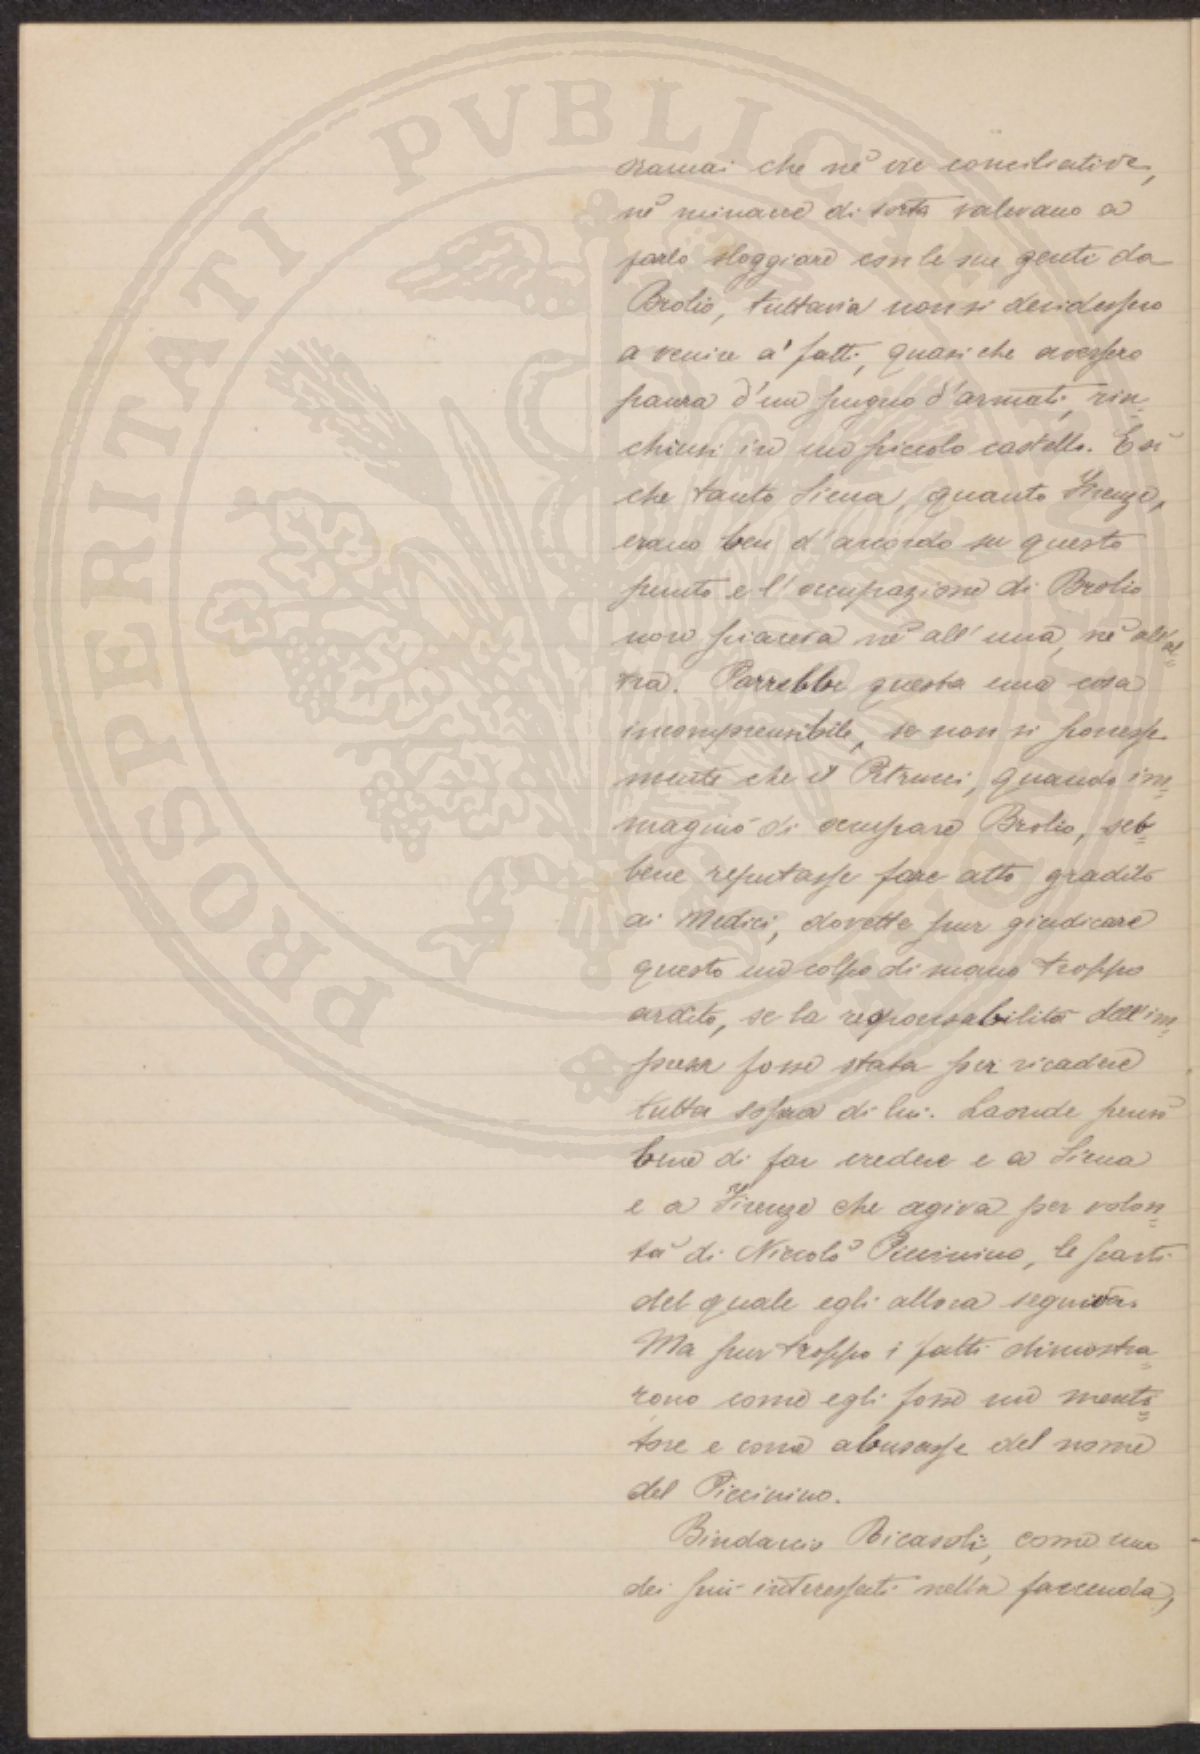 oramai che nè vie conciliative,
nè minacce di sorta valevano a
farlo sloggiare con le sue genti da
Brolio, tuttavia non si decidessero
a venire a' fatti, quasi che avessero
paura d'un pugno d'armati, rin=
chiusi in un piccolo castello. E sì
che tanto Siena, quanto Firenze,
erano ben d'accordo su questo
punto e l'occupazione di Brolio
non piaceva nè all'una, nè all'al=
tra. Parrebbe questa una cosa
incomprensibile, se non si ponesse
mente che il Petrucci, quando im=
maginò di occupare Brolio, seb=
bene reputasse fare atto gradito
ai Medici, dovette pur giudicare
questo un colpo di mano troppo
ardito, se la responsabilità dell'im=
presa fosse stata per ricadere
tutta sopra di lui. Laonde pensò
bene di far credere e a Siena
e a Firenze che agiva per volon=
tà di Niccolò Piccinino, le parti
del quale egli allora seguiva.
Ma pur troppo i fatti dimostra=
rono come egli fosse un menti=
tore e come abusasse del nome
del Piccinino.
Bindaccio Ricasoli, come uno
dei più interessati nella faccenda,
PROSPERITATI PVBLICAE